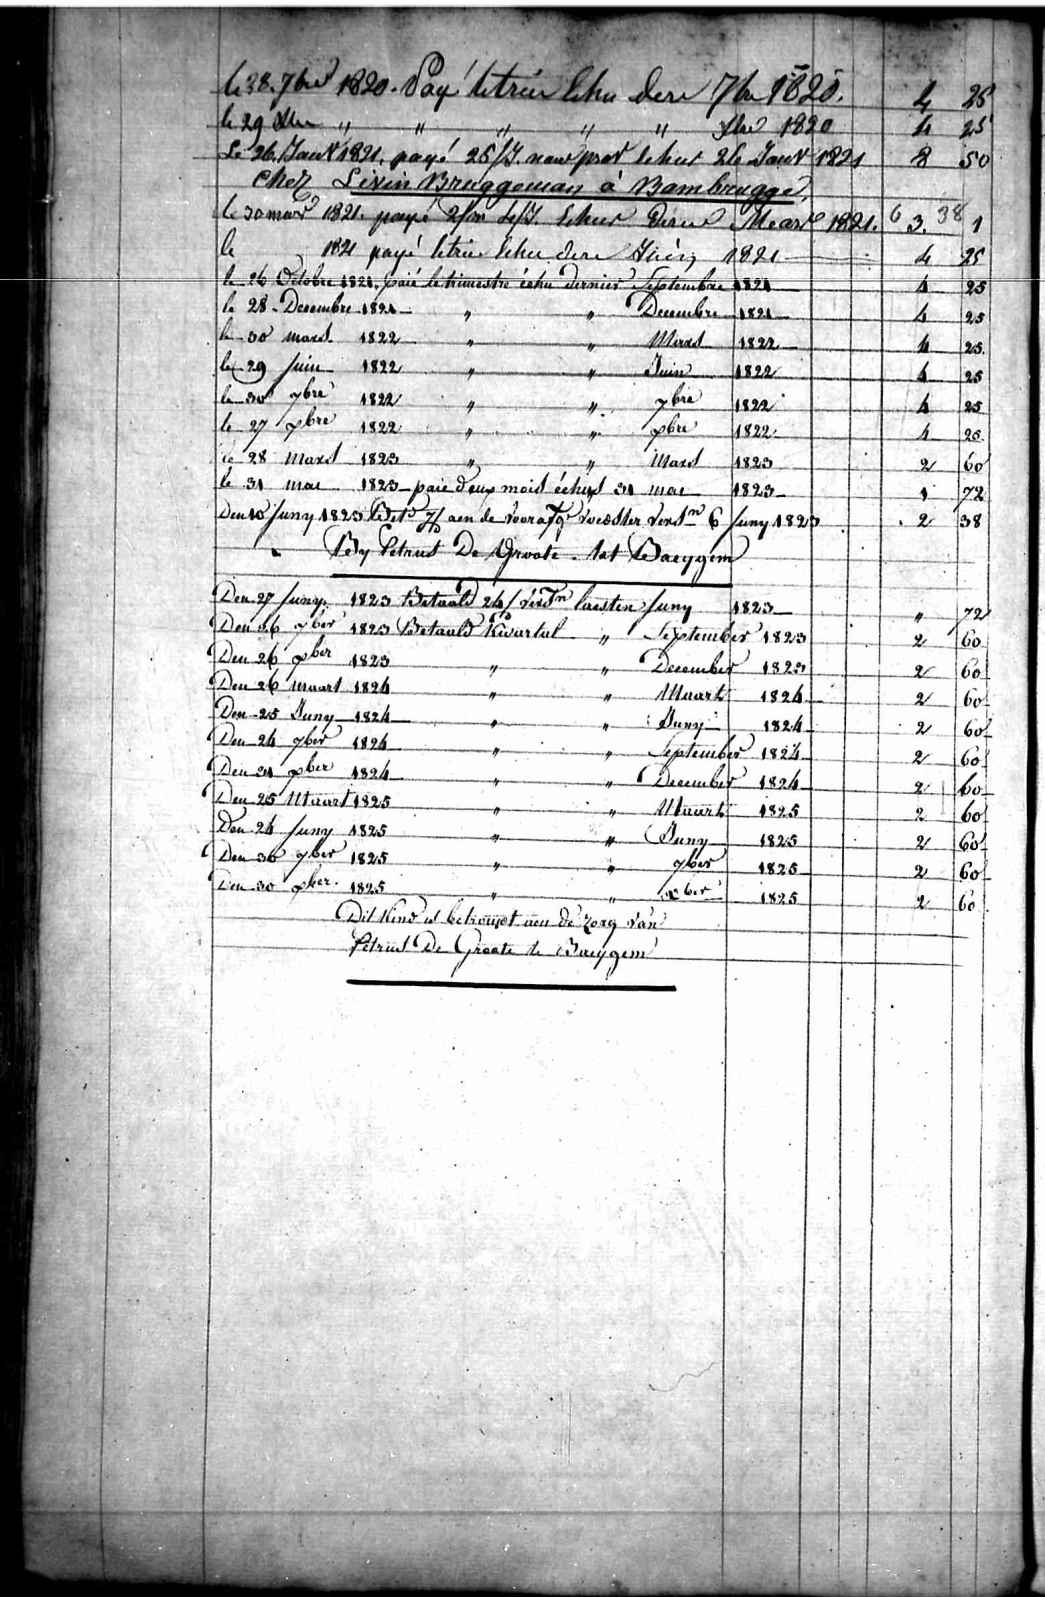 le 28. 7bre 1820. Payé le trie echu dere 7bre 1820. 4 25
le 29 Xbre " " " " " Xbre 1820 4 25
Le 26. Janv 1821. payé 25/J. echut 26 Janv 1821 8 50
chez Livin Bruggeman à Bambrugge,
le 30 mars 1821. payé 2/m echus Mars 1821. 6 38 3. 1
le 1821 payé le trie echu dere Juin 1821 4 25
le 26 Octobre 1821, paié le trimestre échu dernier Septembre 1821 4 25
le 28 - Decembre 1821 " " Decembre 1821 4 25
le 30 mars 1822 " " Mars 1822 4 25
le 29 juin 1822 " " Juin 1822 4 25
le 30 7bre 1822 " " 7bre 1822 4 25
le 27 xbre 1822 " " xbre 1822 4 25
le 28 mars 1823 " " Mars 1823 2 60
le 31 mai 1823 - paié deux mois échus 31 mai 1823 1 72
Den 10 Juny 1823 Bet. aen de voorafg. voedster versn 6 Juny 1823 2 38
By Petrus De Groote tot Baeygem
Den 27 Juny. 1823 Betaald 24/ versn laesten Juny 1823 " 72
Den 26 7ber 1823 Betaald Kwartal " September 1823 2 60
Den 26 xber 1823 " " December 1823 2 60
Den 26 maart 1824 " " Maart 1824 2 60
Den 25 Juny 1824 " " Juny 1824 2 60
Den 24 7ber 1824 " " September 1824 2 60
Den 31 xber 1824 " " December 1824 2 60
Den 25 Maart 1825 " " Maart 1825 2 60
Den 24 Juny 1825 " " Juny 1825 2 60
Den 30 7ber 1825 " " 7ber 1825 2 60
Den 30 xber 1825 " " xber 1825 2 60
Dit Kind is betrouwt aen de zorg van
Petrus De Groote te Baeygem